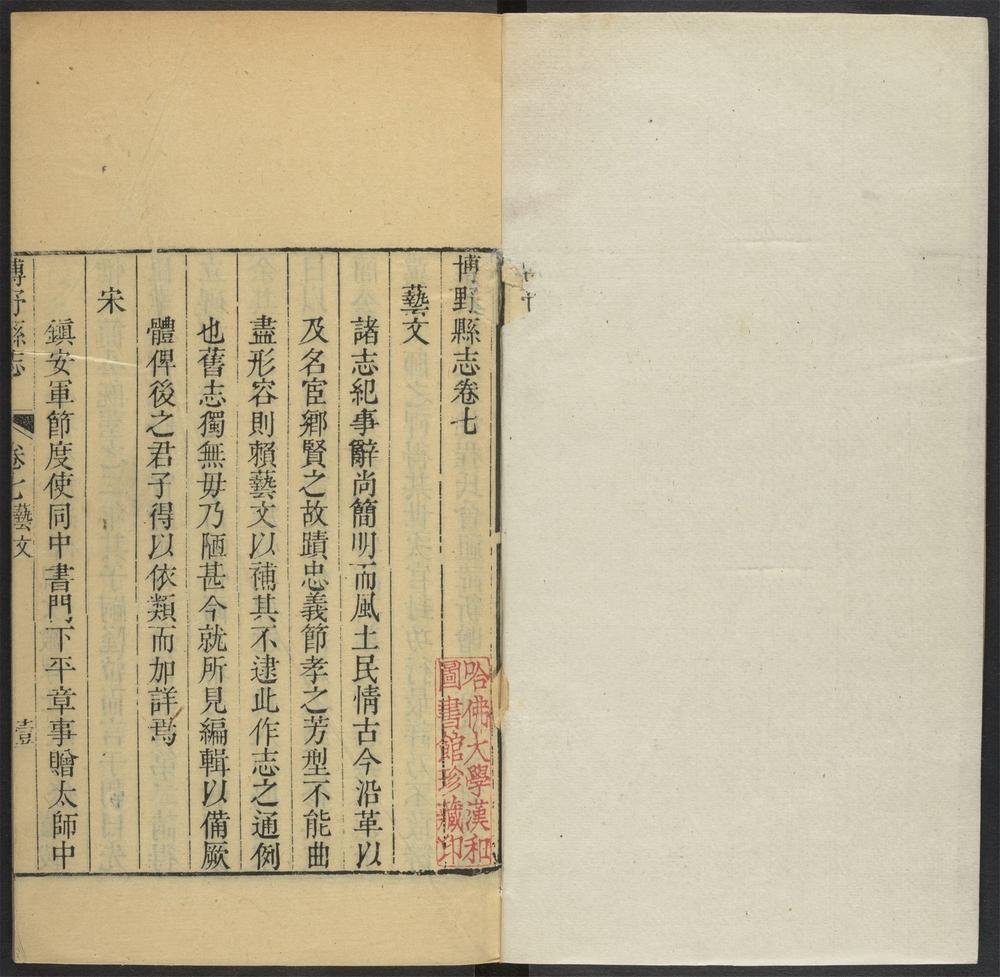 博野縣志卷七
藝文
諸志紀事辭尚簡明而風土民情古今沿革以
及名宦鄉賢之故蹟忠義節孝之芳型不能曲
盡形容則賴藝文以補其不逮此作志之通例
也舊志獨無毋乃陋甚今就所見編輯以備厥
體俾後之君子得以依類而加詳焉
宋
鎮安軍節度使同中書門下平章事贈太師中
博野縣志
卷七藝文
壹
哈佛大學漢和
圖書館珍藏印